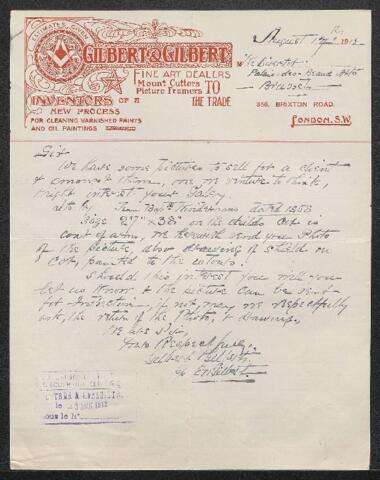 ESTIMATES GIVEN
GILBERT & GILBERT
FINE ART DEALERS
Mount Cutters
Picture Framers TO
THE TRADE
INVENTORS OF A
NEW PROCESS
FOR CLEANING VARNISHED PRINTS
AND OIL PAINTINGS
August 1912
M
Palais des Beaux Arts
Brussels
356, BRIXTON ROAD,
LONDON. S.W.
Sir
We have some pictures to sell for a client
& amongst them, one we venture to think,
might interest your Galery.
dated 1858
Size 27" x 38" on the childs Cot is
coat of arms, we herewith send you Photo
of the picture, also drawing of shield on
Cot,
Should this interest you will you
let us know & the picture can be sent
for Inspection, if not, may we respectfully
ask, the return of the Photo, & Drawing,
We are Sir,
Yours Respectfully,
Gilbert & Gilbert
1912
sous le N°